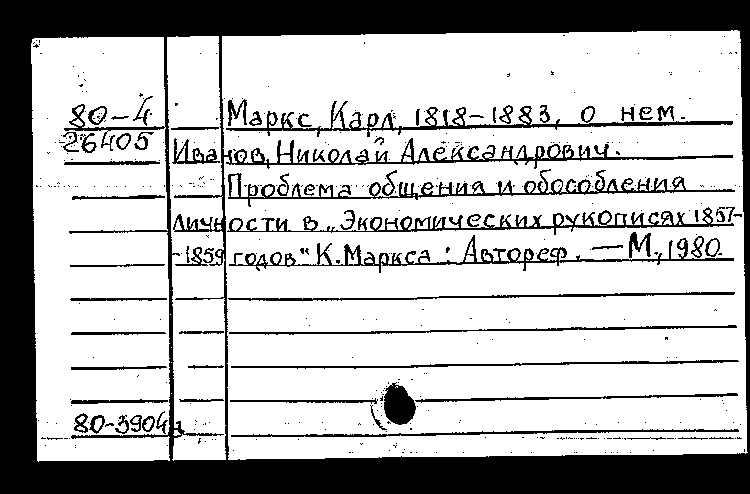 80-4 Маркс, Карл, 1818-1883, о нем.
26405 Иванов, Николай Александрович.
Проблема общения и обособления
личности в „Экономических рукописях 1857-
-1859 годов" К. Маркса : Автореф. — М., 1980.
80-3904а